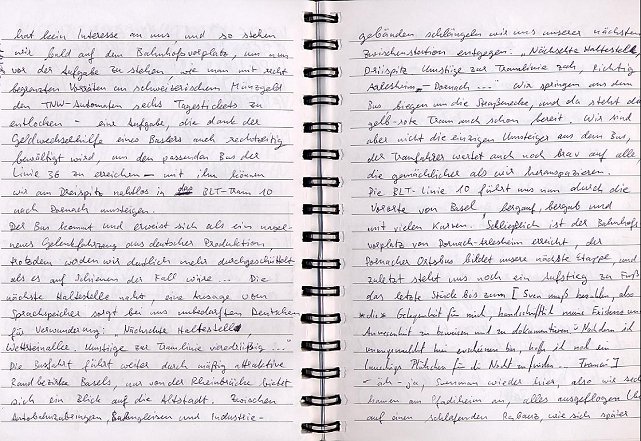 hat kein Interesse an uns und so stehen
wir bald auf dem Bahnhofsvorplatz, um nun
vor der Aufgabe zu stehen, wie man mit recht
begrenzten Vorräten an schweizerischem Münzgeld
den TNW-Automaten sechs Tagestickets zu
entlocken - eine Aufgabe, die dank der
Geldwechselhilfe eines Baslers auch rechtzeitig
bewältigt wird, um den passenden Bus der
Linie 36 zu erreichen - mit ihm können
wir am Dreispitz nahtlos in das BLT-Tram 10
nach Dornach umsteigen.
Der Bus kommt und erweist sich als ein nagel-
neues Gelenkfahrzeug aus deutscher Produktion,
trotzdem werden wir deutlich mehr durchgeschüttelt
als es auf Schienen der Fall wäre ... Die
nächste Haltestelle naht, eine Aussage vom
Sprachspeicher sorgt bei uns unbedarften Deutschen
für Verwunderung: Nächschte Haltestell
Wettsteinallee Umstiige zur Tramlinie
Die Busfahrt führt weiter durch mäßig attraktive
Randbezirke Basels, nur von der Rheinbrücke bietet
sich ein Blick auf die Altstadt. Zwischen
Autobahnzubringern, Bahngleisen und Industrie-
gebäuden schlängeln wir uns unserer nächsten
Zwischenstation entgegen: "Nächschte Haltestell,
Driispitz Umstiige zur Tramlinie zäh, Richtig
Arlesheim, Dornach ..." Wir springen aus dem
Bus biegen um die Straßenecke, und da steht die
gelb-rote Tram auch schon bereit. Wir sind
aber nicht die einzigen Umsteiger aus dem Bus,
der Tramfahrer wartet auch noch brav auf alle
die gemächlicher als wir heranspazieren.
Die BLT-Linie 10 führt uns nun durch die
Vororte von Basel, bergauf, bergab und
mit vielen Kurven. Schließlich ist der Bahnhofs-
vorplatz von Dornach-Arlesheim erreicht, der
Dornacher Ortsbus bildet unsere nächste Etappe, und
zuletzt steht uns noch ein Aufstieg zu Fuß
das letzte Stück bis zum [Sven muß bezahlen, also
*die* Gelegenheit für mich, handschriftlich meine Existenz und
Anwesenheit zu beweisen und zu dokumentieren." Nachdem ich
unangemeldet hier erschienen bin, hoffe ich noch ein
Plätzchen für die Nacht zu finden ...]
- ich - ja, wieder hier, also wir
kamen am Pfadiheim an, alles ausgeflogen
auf einen schlafenden, wie sich später